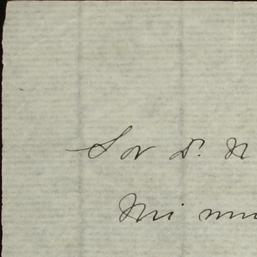 Sor D. N
Mi mu